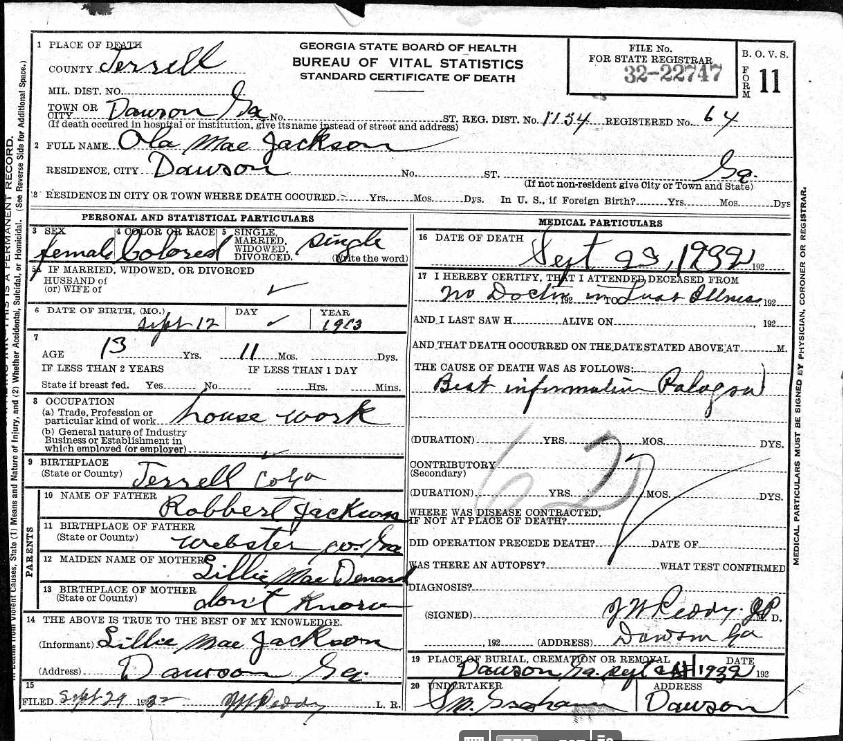 1 PLACE OF DEATH
COUNTY Terrell
GEORGIA STATE BOARD OF HEALTH
BUREAU OF VITAL STATISTICS
STANDARD CERTIFICATE OF DEATH
FILE No.
FOR STATE REGISTRAR
32-22747
B. O. V. S.
FORM 11
MIL. DIST. NO.
TOWN OR CITY Dawson Ga No. ST. REG. DIST. No. 1134 REGISTERED No. 64
(If death occured in hospital or institution, give its name instead of street and address)
2 FULL NAME Ola Mae Jackson
RESIDENCE, CITY Dawson No. ST. Ga.
(If not non-resident give City or Town and State)
RESIDENCE IN CITY OR TOWN WHERE DEATH OCCURED Yrs. Mos. Dys. In U. S., if Foreign Birth? Yrs. Mos. Dys
PERSONAL AND STATISTICAL PARTICULARS
3 SEX female 4 COLOR OR RACE Colored 5 SINGLE, MARRIED, WIDOWED, DIVORCED. single (write the word)
5a IF MARRIED, WIDOWED, OR DIVORCED
HUSBAND of
(or) WIFE of ✓
6 DATE OF BIRTH, (MO.) Sept 12 DAY ✓ YEAR
7 AGE 13 Yrs. 11 Mos. Dys.
IF LESS THAN 2 YEARS IF LESS THAN 1 DAY
State if breast fed. Yes No Hrs. Mins.
8 OCCUPATION
(a) Trade, Profession or
particular kind of work house work
(b) General nature of Industry
Business or Establishment in
which employed (or employer)
9 BIRTHPLACE
(State or County) Terrell Co Ga
PARENTS
10 NAME OF FATHER
Robbert Jackson
11 BIRTHPLACE OF FATHER
(State or County) Webster co. Ga
12 MAIDEN NAME OF MOTHER
Lillie Mae Denard
13 BIRTHPLACE OF MOTHER
(State or County) don't Know
14 THE ABOVE IS TRUE TO THE BEST OF MY KNOWLEDGE.
(Informant) Lillie Mae Jackson
(Address) Dawson Ga.
15
FILED Sept 29 1932 JW Peddy L. R.
MEDICAL PARTICULARS
16 DATE OF DEATH Sept 23, 1932 192
17 I HEREBY CERTIFY, THAT I ATTENDED DECEASED FROM
No Doctor 192 in TO Last Illness, 192
AND I LAST SAW H ALIVE ON , 192
AND THAT DEATH OCCURRED ON THE DATE STATED ABOVE AT M.
THE CAUSE OF DEATH WAS AS FOLLOWS:
Best information
(DURATION) YRS. MOS. DYS.
CONTRIBUTORY
(Secondary)
(DURATION) YRS. MOS. DYS.
WHERE WAS DISEASE CONTRACTED,
IF NOT AT PLACE OF DEATH?
DID OPERATION PRECEDE DEATH? DATE OF
WAS THERE AN AUTOPSY? WHAT TEST CONFIRMED
DIAGNOSIS?
(SIGNED) JW Peddy JP M. D.
192 (ADDRESS) Dawson Ga
19 PLACE OF BURIAL, CREMATION OR REMOVAL DATE
Dawson Ga. Sept 1932 192
20 UNDERTAKER ADDRESS
Dawson
MEDICAL PARTICULARS MUST BE SIGNED BY PHYSICIAN, CORONER OR REGISTRAR.
THIS IS A PERMANENT RECORD.
(See Reverse Side for Additional Space.)
from Violent Causes, State (1) Means and Nature of Injury, and (2) Whether Accidental, Suicidal, or Homicidal.